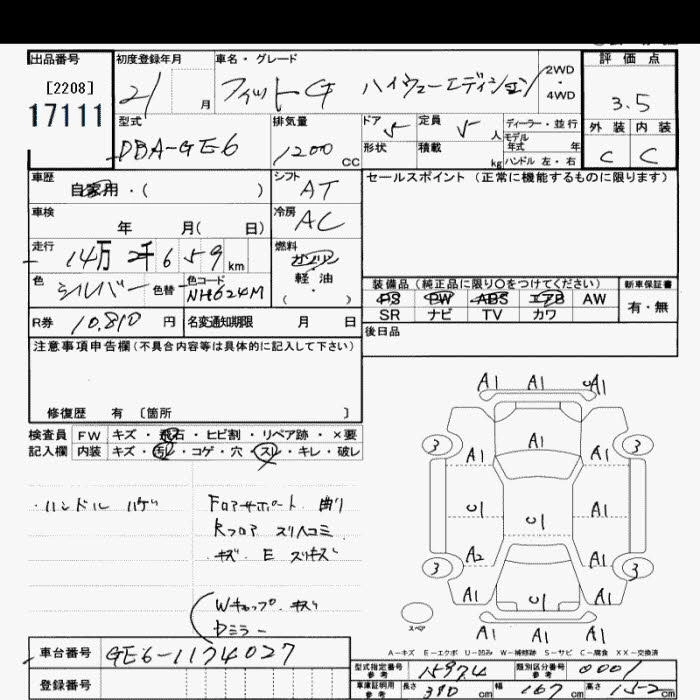 出品番号 初度登録年月 車名・グレード 2WD・4WD 評価点
[2208]
17111
21 月 フィットG ハイウェーエディション 3.5
型式 排気量 ドア 5 定員 5 人 ディーラー・並行 外装 内装
DBA-GE6 1200 CC 形状 積載 kg モデル年式 年 ハンドル 左・右 C C
車歴 自家用・( ) シフト AT セールスポイント(正常に機能するものに限ります)
車検 年 月( 日) 冷房 AC
走行 14万 2千 6 5 9 km 燃料 ガソリン
軽・油
( )
色 シルバー 色替 色コード NH624M
装備品(純正品に限り○をつけてください) 新車保証書
PS PW ABS エアB AW 有・無
SR ナビ TV カワ
R券 10,810 円 名変通知期限 月 日
後日品
注意事項申告欄(不具合内容等は具体的に記入して下さい)
修復歴 有 〔箇所 〕
検査員 FW キズ・飛石・ヒビ割・リペア跡・×要
記入欄 内装 キズ・汚れ・コゲ・穴・スレ・キレ・破レ
・ハンドル ハゲ
Fロアサポート 曲り
Rフロア スリ凹コミ
キズ E スリキズ
Wキャップ キズ
Dミラー
A1 A1 A1
3 A1 A1 A1 3
U1 U1 A1
A2 A1
3 3
A1 U1 A1
A1 A1 A1
スペア
A-キズ E-エクボ U-凹み W-補修跡 S-サビ C-腐食 XX-交換済
車台番号 GE6-1174027
型式指定番号 参考 15974 類別区分番号 参考 0001
登録番号
車庫証明用 参考 長さ 390 cm 幅 169 cm 高さ 152 cm